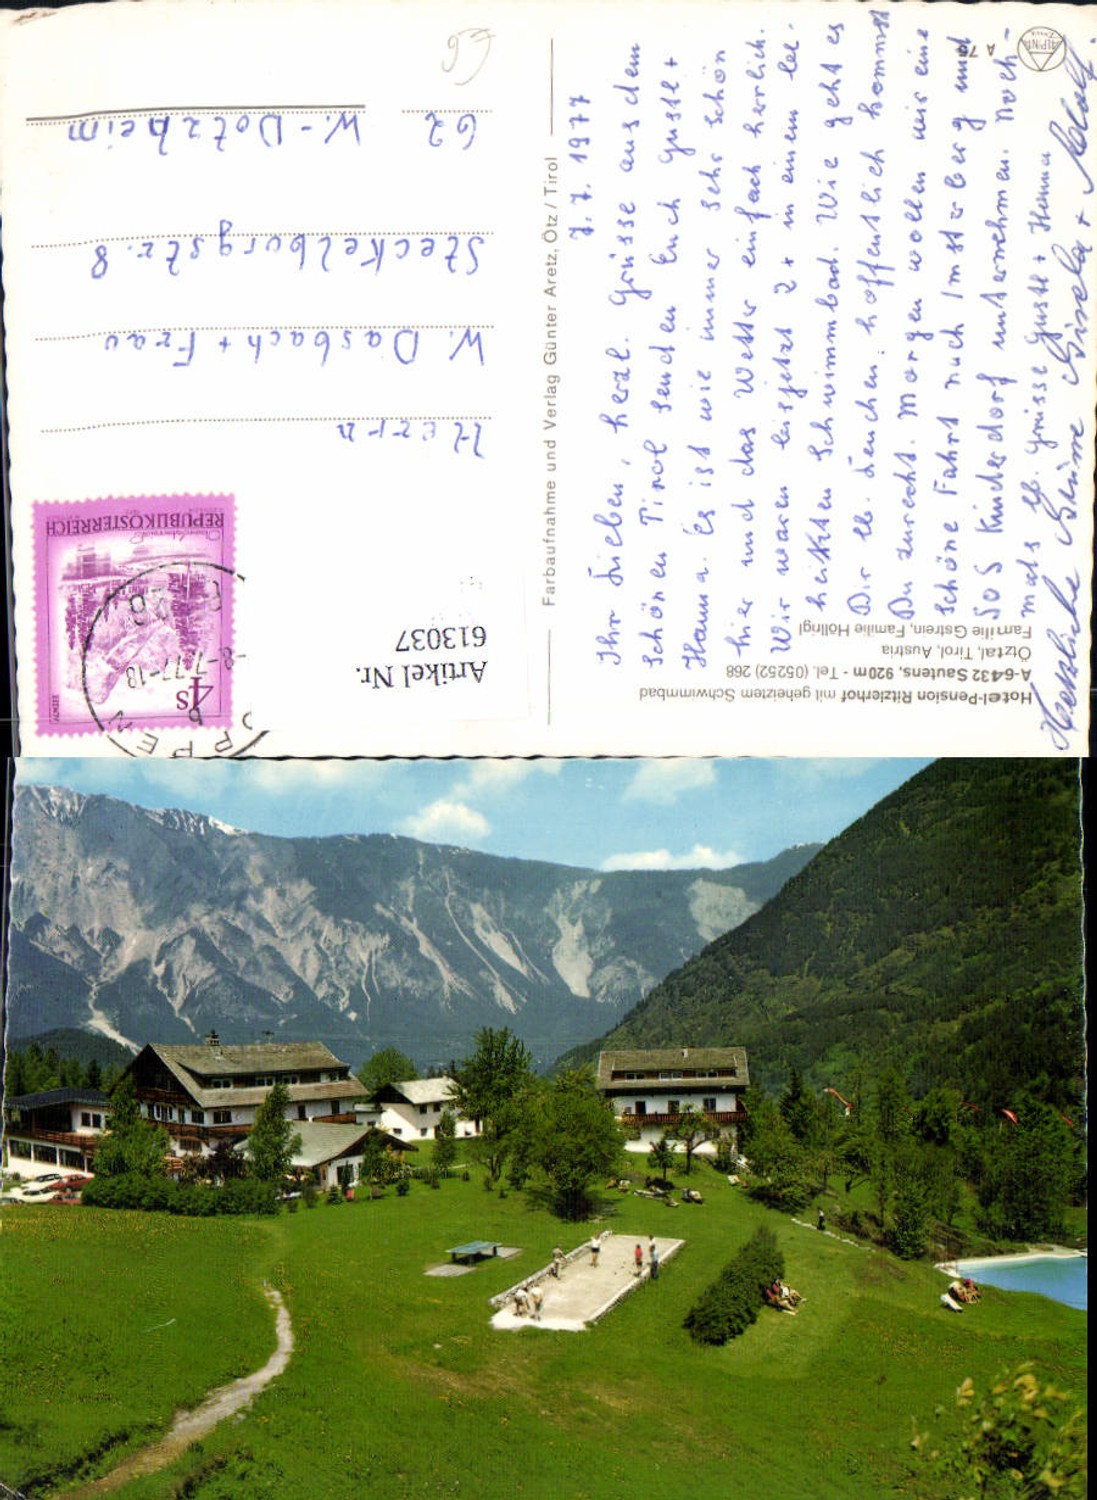 Hotel-Pension Ritzlerhof mit geheiztem Schwimmbad
A-6432 Sautens, 920m - Tel. (05252) 268
Ötztal, Tirol, Austria
Familie Gstrein, Familie Höllrigl
A 70
ALPINA
Farbaufnahme und Verlag Günter Aretz, Ötz / Tirol
7. 7. 1977
Ihr Lieben, herzl. Grüsse aus dem
schönen Tirol senden Euch Gustl +
Hanna. Es ist wie immer sehr schön
hier und das Wetter einfach herrlich.
Wir waren bisjetzt 2 x in einem be-
heitzten Schwimmbad. Wie geht es
Dir lb. Lenchen, hoffentlich kommst
Du zurecht. Morgen wollen wir eine
schöne Fahrt nach Imsterberg und
SOS Kinderdorf unternehmen. Noch-
mals lb. Grüsse Gustl + Hanna
Herzliche Grüsse Gisela +
REPUBLIK ÖSTERREICH
4s
-8.-7.77-18
Artikel Nr.
613037
Herrn
W. Dasbach + Frau
Steckelburgstr. 8
62 W.-Dotzheim